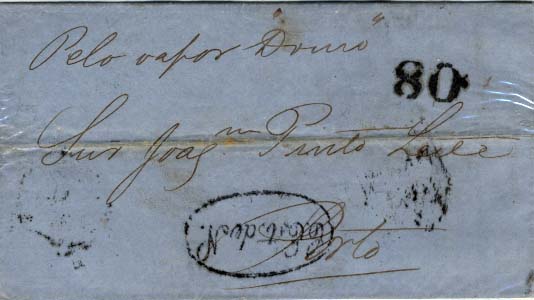 Pelo vapor "Douro"
80
Snr Joaq^m Pinto Leite
Porto